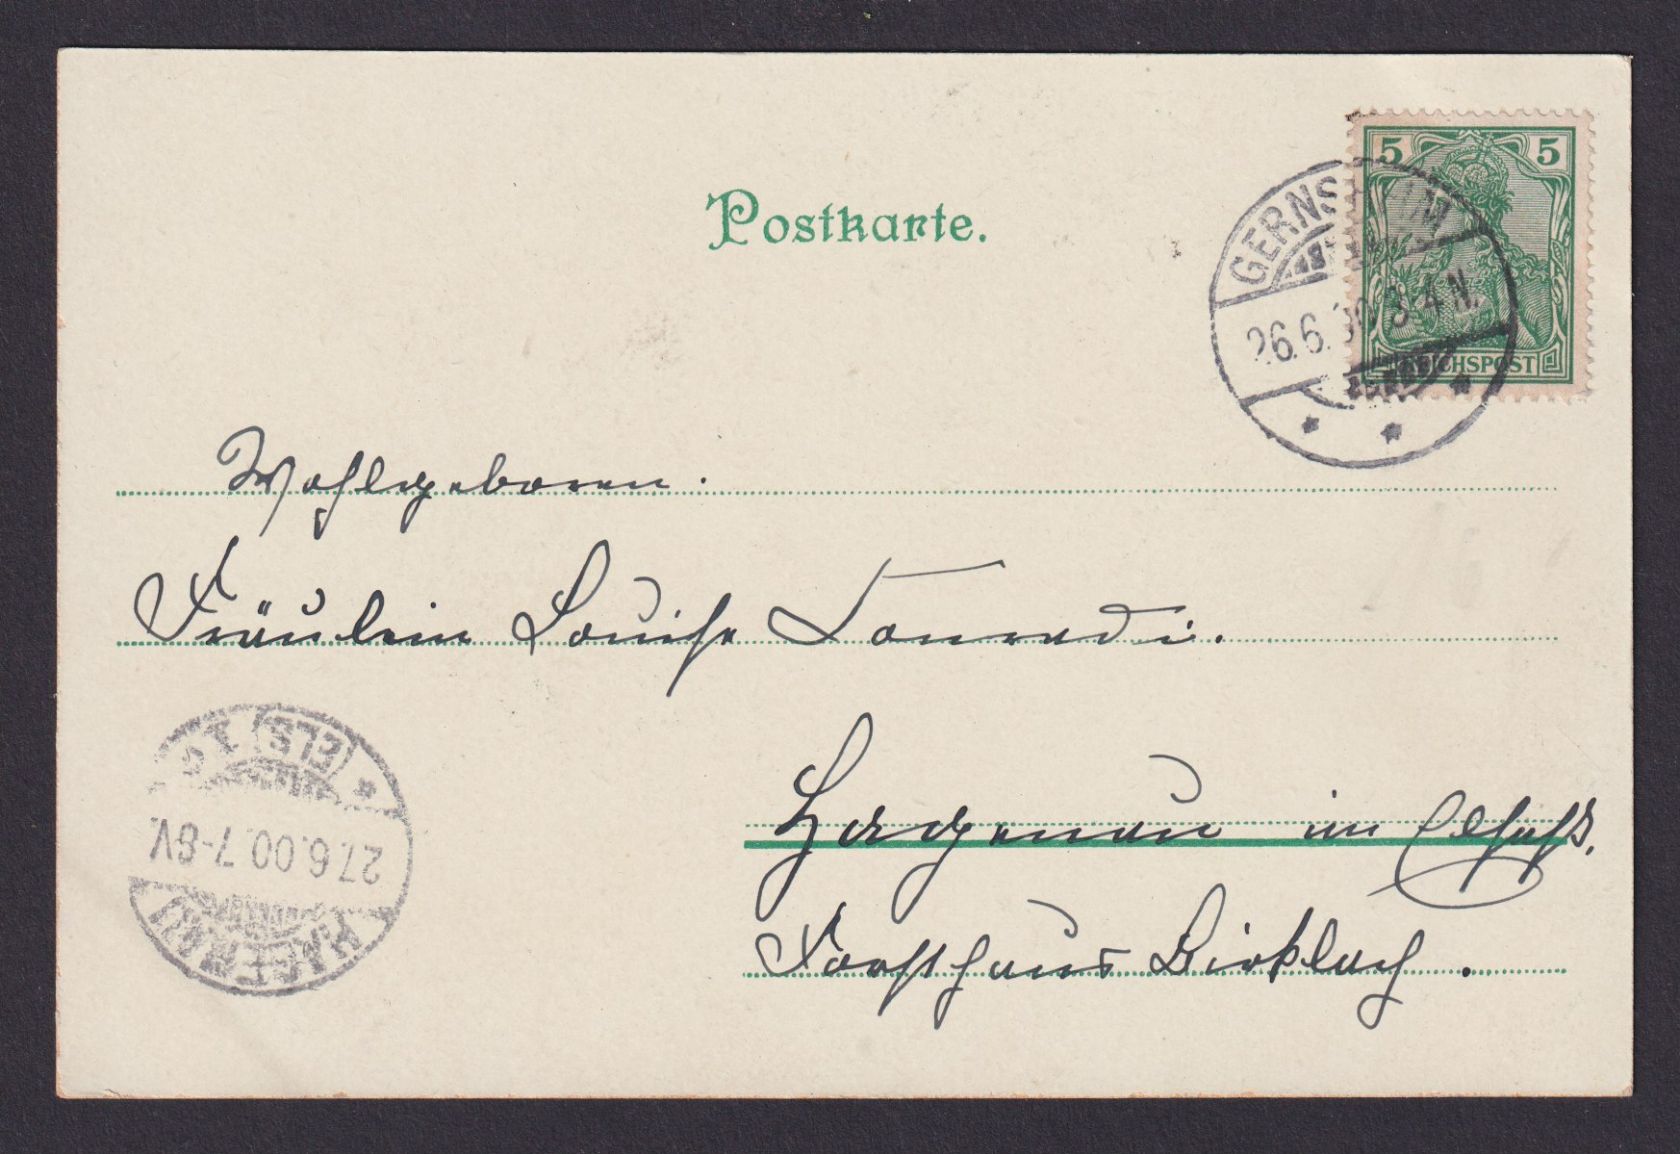 Postkarte.
5 5
REICHSPOST
GERNSHEIM
26.6.00 3-4 N.
Wohlgeboren.
Fräulein Louise Conradi.
Hagenau im Elsaß.
Forsthaus Birklach.
HAGENAU
27.6.00.7-8V.
(ELS)